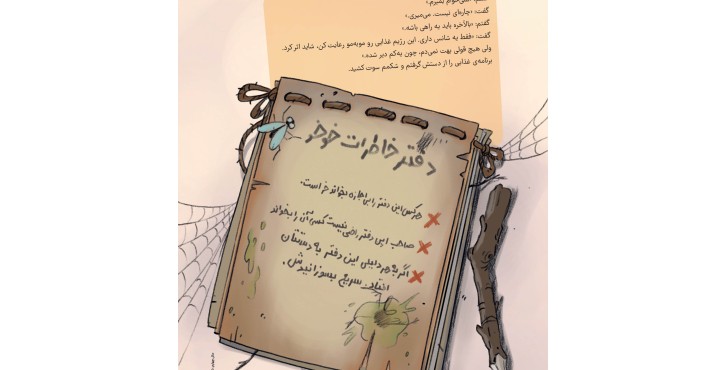 گفتم: «نمی‌خوام بمیرم.»
گفت: «چاره‌ای نیست. می‌میری.»
گفتم: «بالأخره باید یه راهی باشه.»
گفت: «فقط یه شانس داری. این رژیم غذایی رو موبه‌مو رعایت کن، شاید اثر کرد.
ولی هیچ قولی بهت نمی‌دم، چون یه‌کم دیر شده.»
برنامه‌ی غذایی را از دستش گرفتم و شکمم سوت کشید.
دفتر خاطرات خوخر
هرکس این دفتر را بی‌اجازه بخواند خر است.
صاحب این دفتر راضی نیست کسی آن را بخواند
اگر به هر دلیلی این دفتر به دستتان
افتاد، سریع بسوزانیدش.